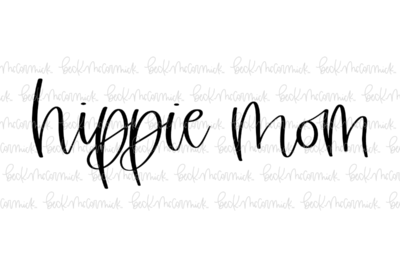 hippie mom